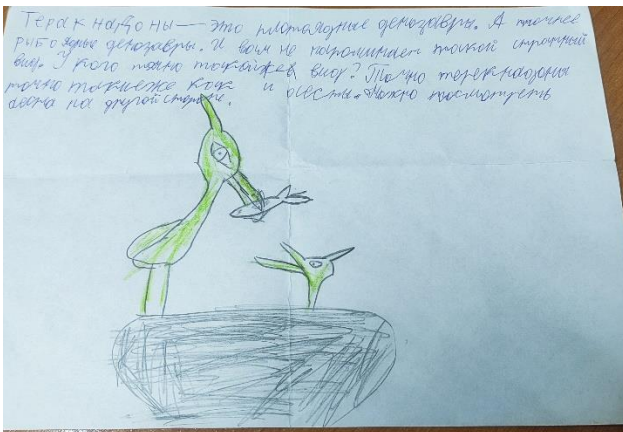 Теракнадоны — это плотоядные денозавры. А точнее
рибоядные денозавры. И вам не напоминает такой странный
вид. У кого такой вид? Точно теракнадоны
точно такиеже как и аисты. Можно посмотреть
на другой стороне.